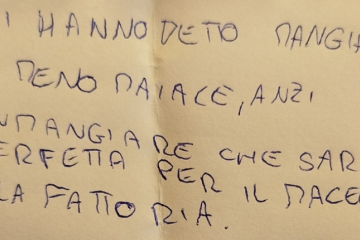 I HANNO DETTO MANGIA
MENO MAIALE, ANZI
NMANGIARE CHE SAR
ERFETTA PER IL MACE
LA FATTORIA.